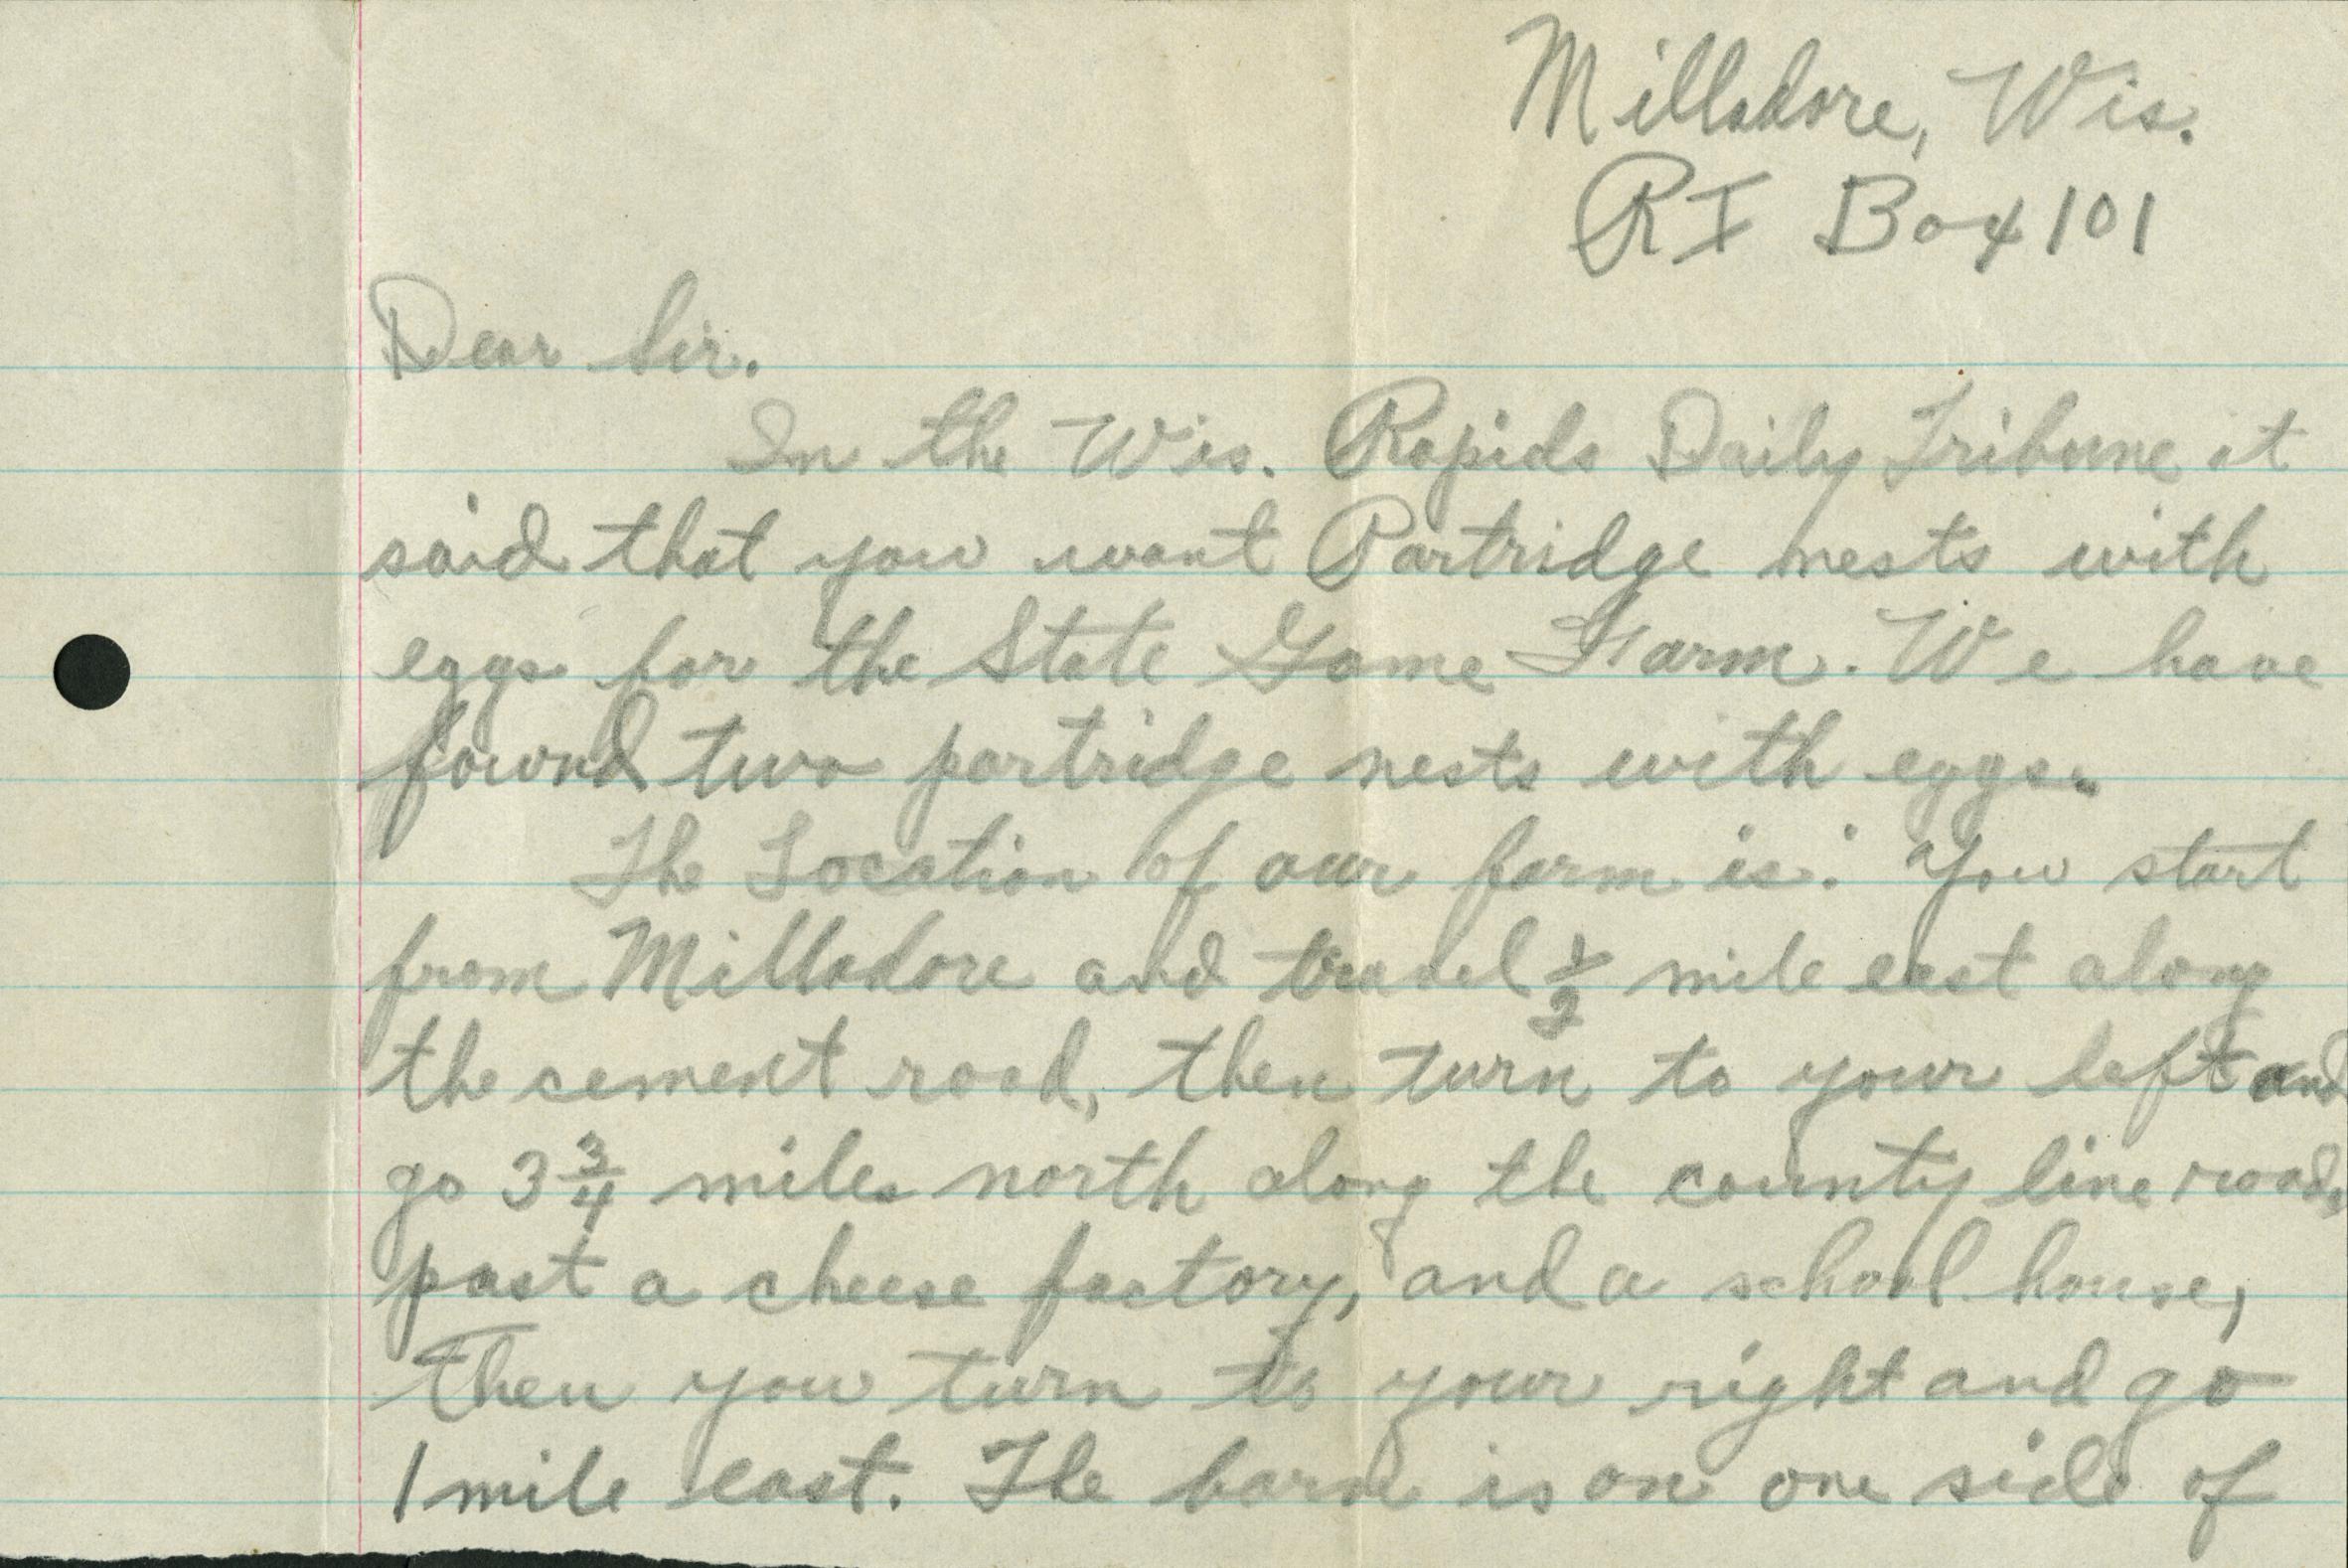 Milladore, Wis.
R I Box 101
Dear Sir.
In the Wis. Rapids Daily Tribune it
said that you want Partridge nests with
eggs for the State Game Farm. We have
found two partridge nests with eggs.
The Location of our farm is: You start
from Milladore and travel 1/2 mile east along
the cement road, then turn to your left and
go 3 3/4 miles north along the county line road,
past a cheese factory, and a school house,
Then you turn to your right and go
1 mile east. The barn is on one side of